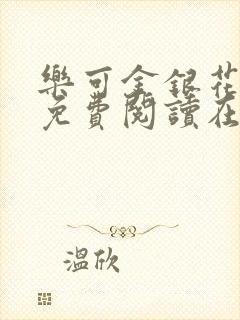 樂可金銀花
免費閱讀在
溫欣